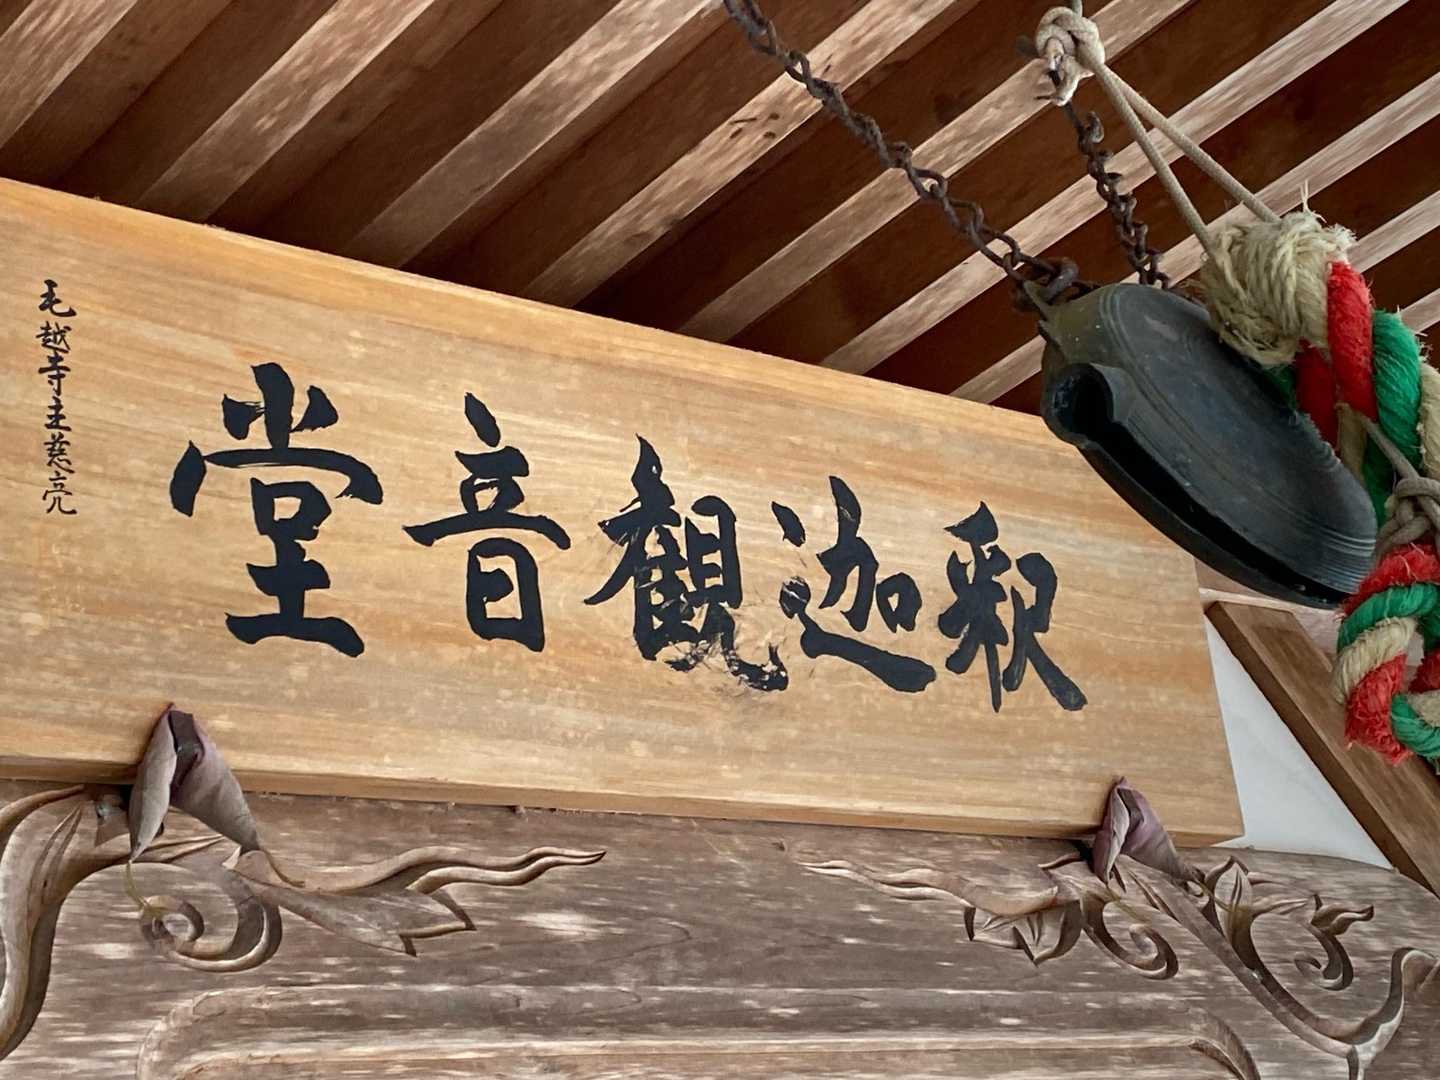 釈迦観音堂
毛越寺主慈亮